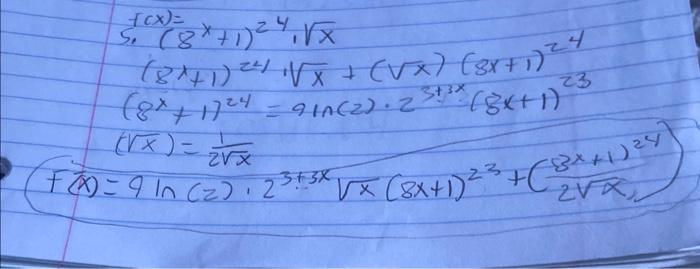 f(x)=
5. (8^x+1)^24 · √x
(8^x+1)^24 · √x + (√x) (8x+1)^24
(8^x+1)^24 = 9 ln(2) · 2^3+3x (8x+1)^23
(√x) = 1/2√x
f(x) = 9 ln(2) · 2^3+3x √x (8x+1)^23 + (8^x+1)^24/2√x